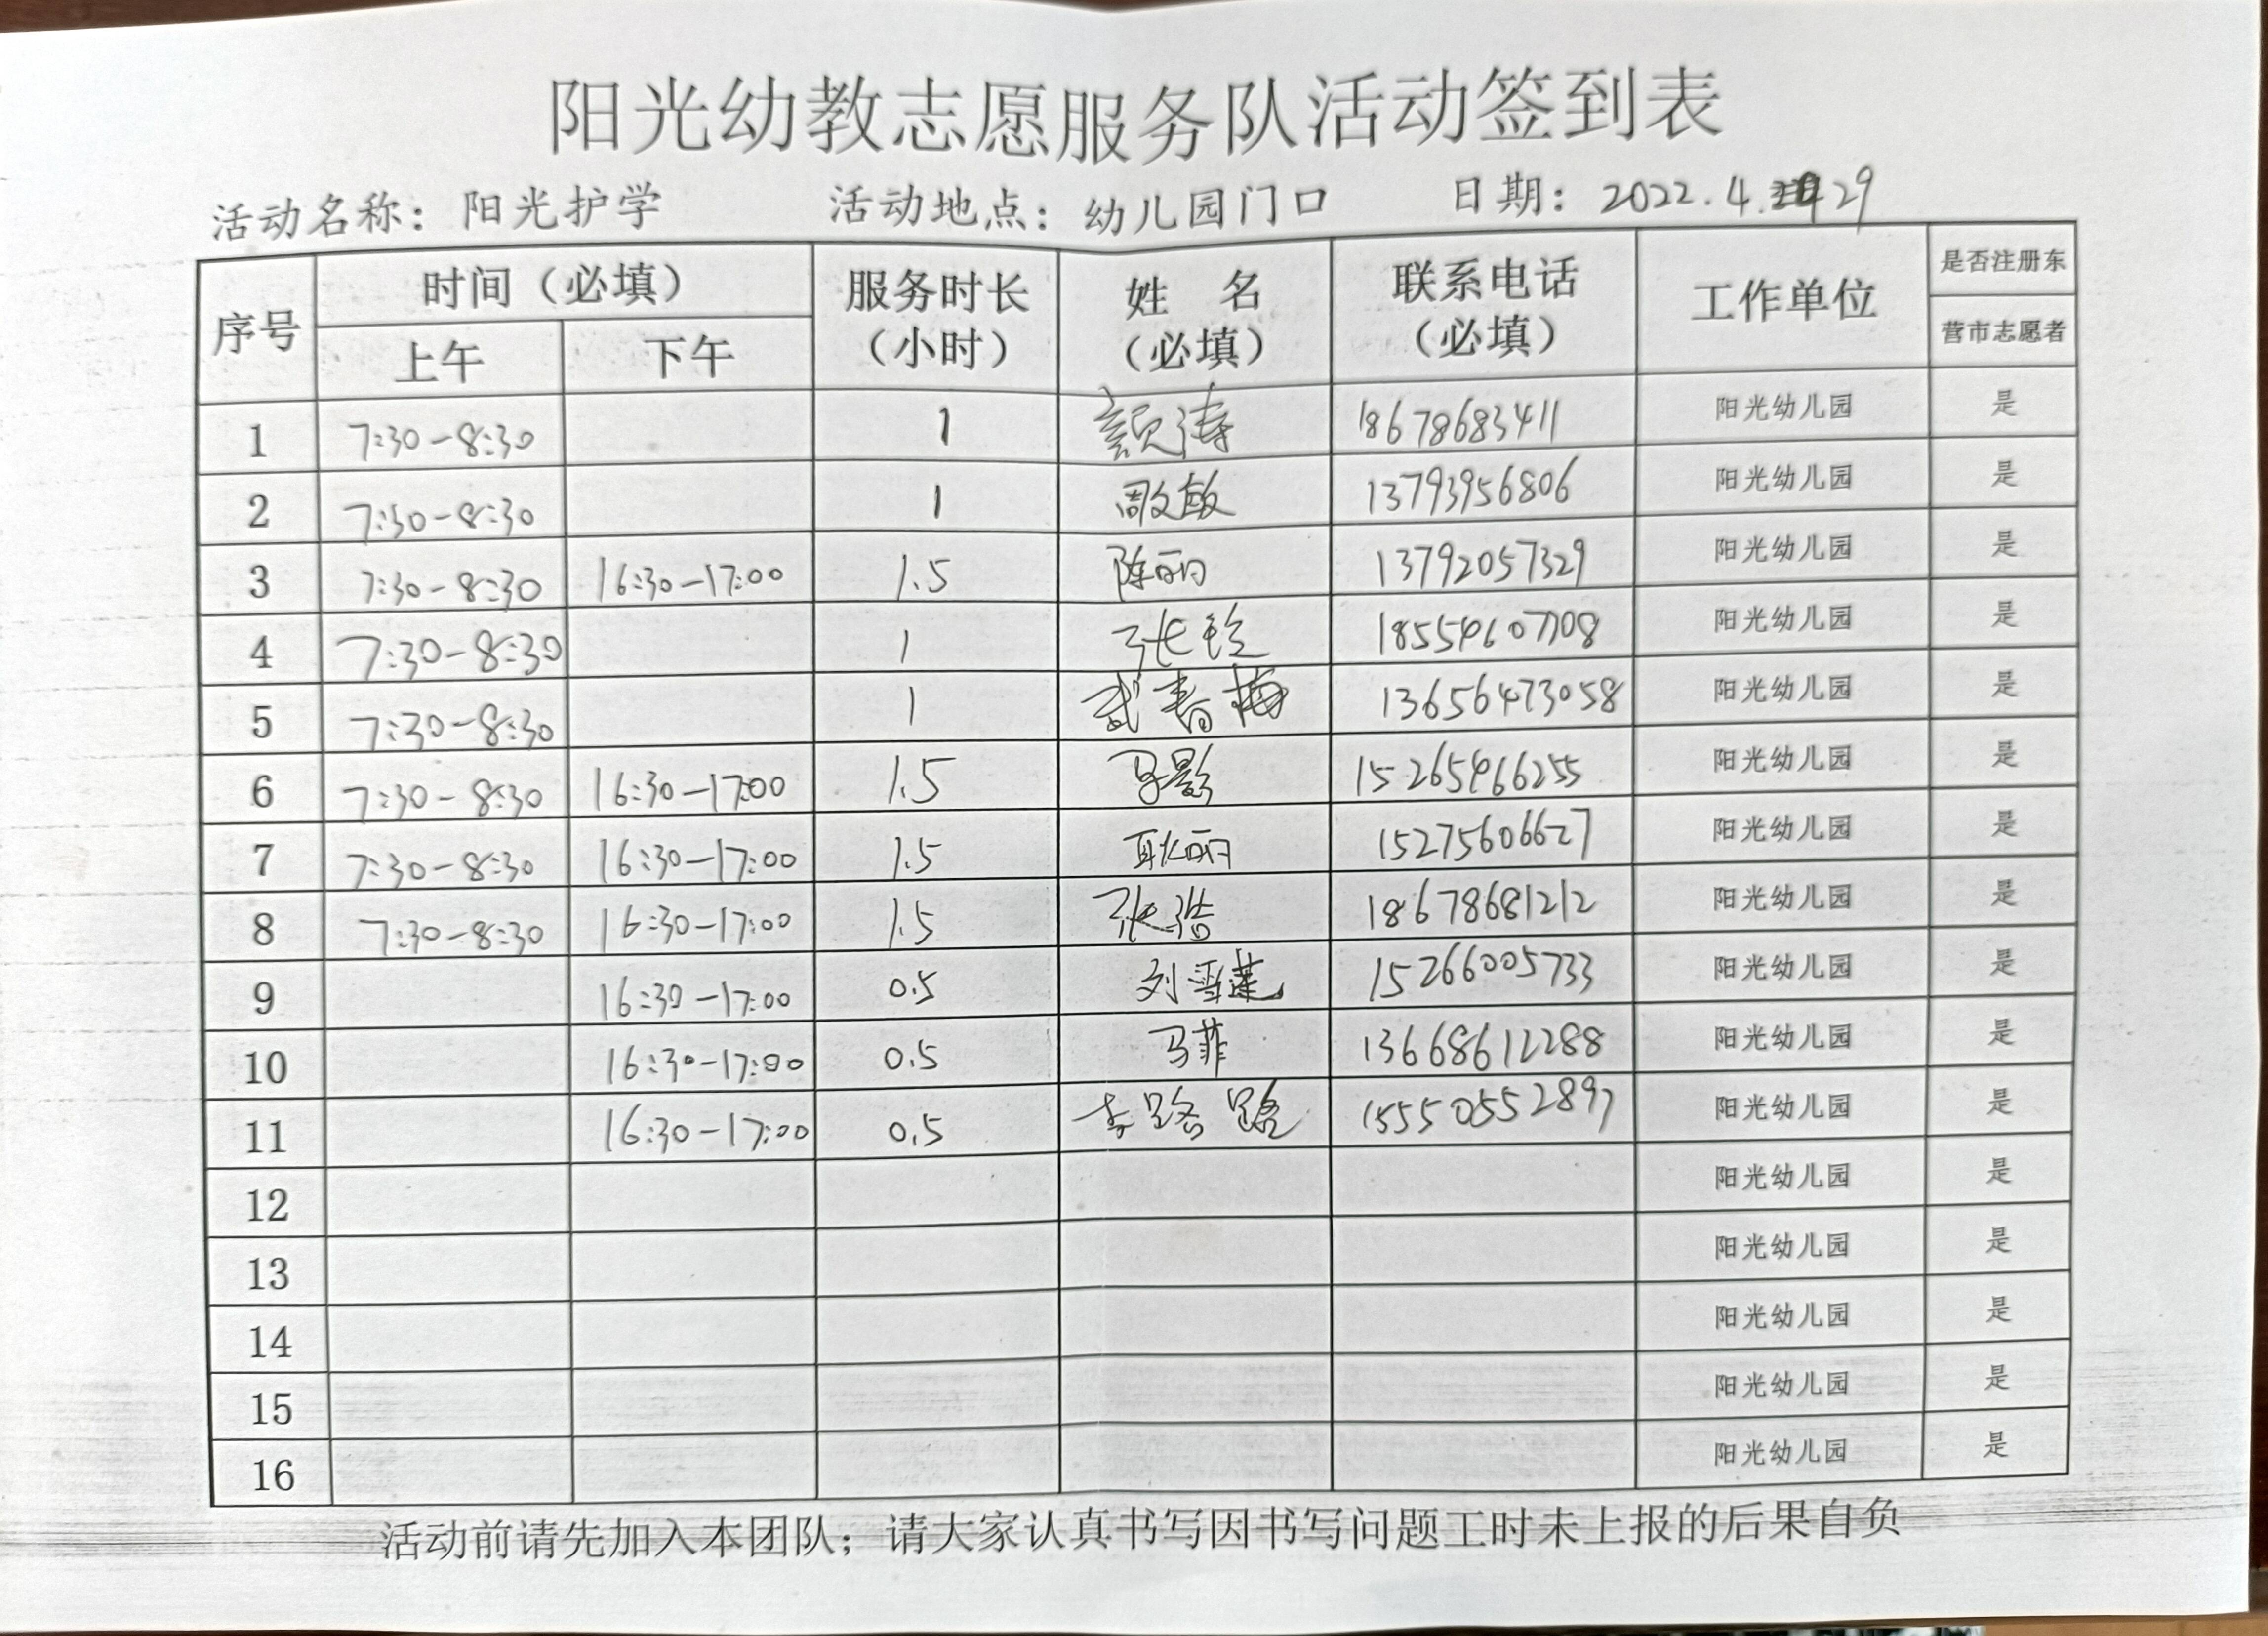 阳光幼教志愿服务队活动签到表
活动名称：阳光护学 活动地点：幼儿园门口 日期：2022.4.29
序号 时间（必填） 服务时长（小时） 姓 名（必填） 联系电话（必填） 工作单位 是否注册东营市志愿者
上午 下午
1 7:30-8:30 1 颜涛 18678683411 阳光幼儿园 是
2 7:30-8:30 1 周敏 13793956806 阳光幼儿园 是
3 7:30-8:30 16:30-17:00 1.5 陈丽 13792057329 阳光幼儿园 是
4 7:30-8:30 1 张玲 18554607708 阳光幼儿园 是
5 7:30-8:30 1 武春梅 13656473058 阳光幼儿园 是
6 7:30-8:30 16:30-17:00 1.5 马影 15265466255 阳光幼儿园 是
7 7:30-8:30 16:30-17:00 1.5 耿丽 15275606627 阳光幼儿园 是
8 7:30-8:30 16:30-17:00 1.5 张浩 18678681212 阳光幼儿园 是
9 16:30-17:00 0.5 刘雪莲 15266005733 阳光幼儿园 是
10 16:30-17:00 0.5 马菲 13668612288 阳光幼儿园 是
11 16:30-17:00 0.5 李路路 15550552897 阳光幼儿园 是
12 阳光幼儿园 是
13 阳光幼儿园 是
14 阳光幼儿园 是
15 阳光幼儿园 是
16 阳光幼儿园 是
活动前请先加入本团队；请大家认真书写因书写问题工时未上报的后果自负